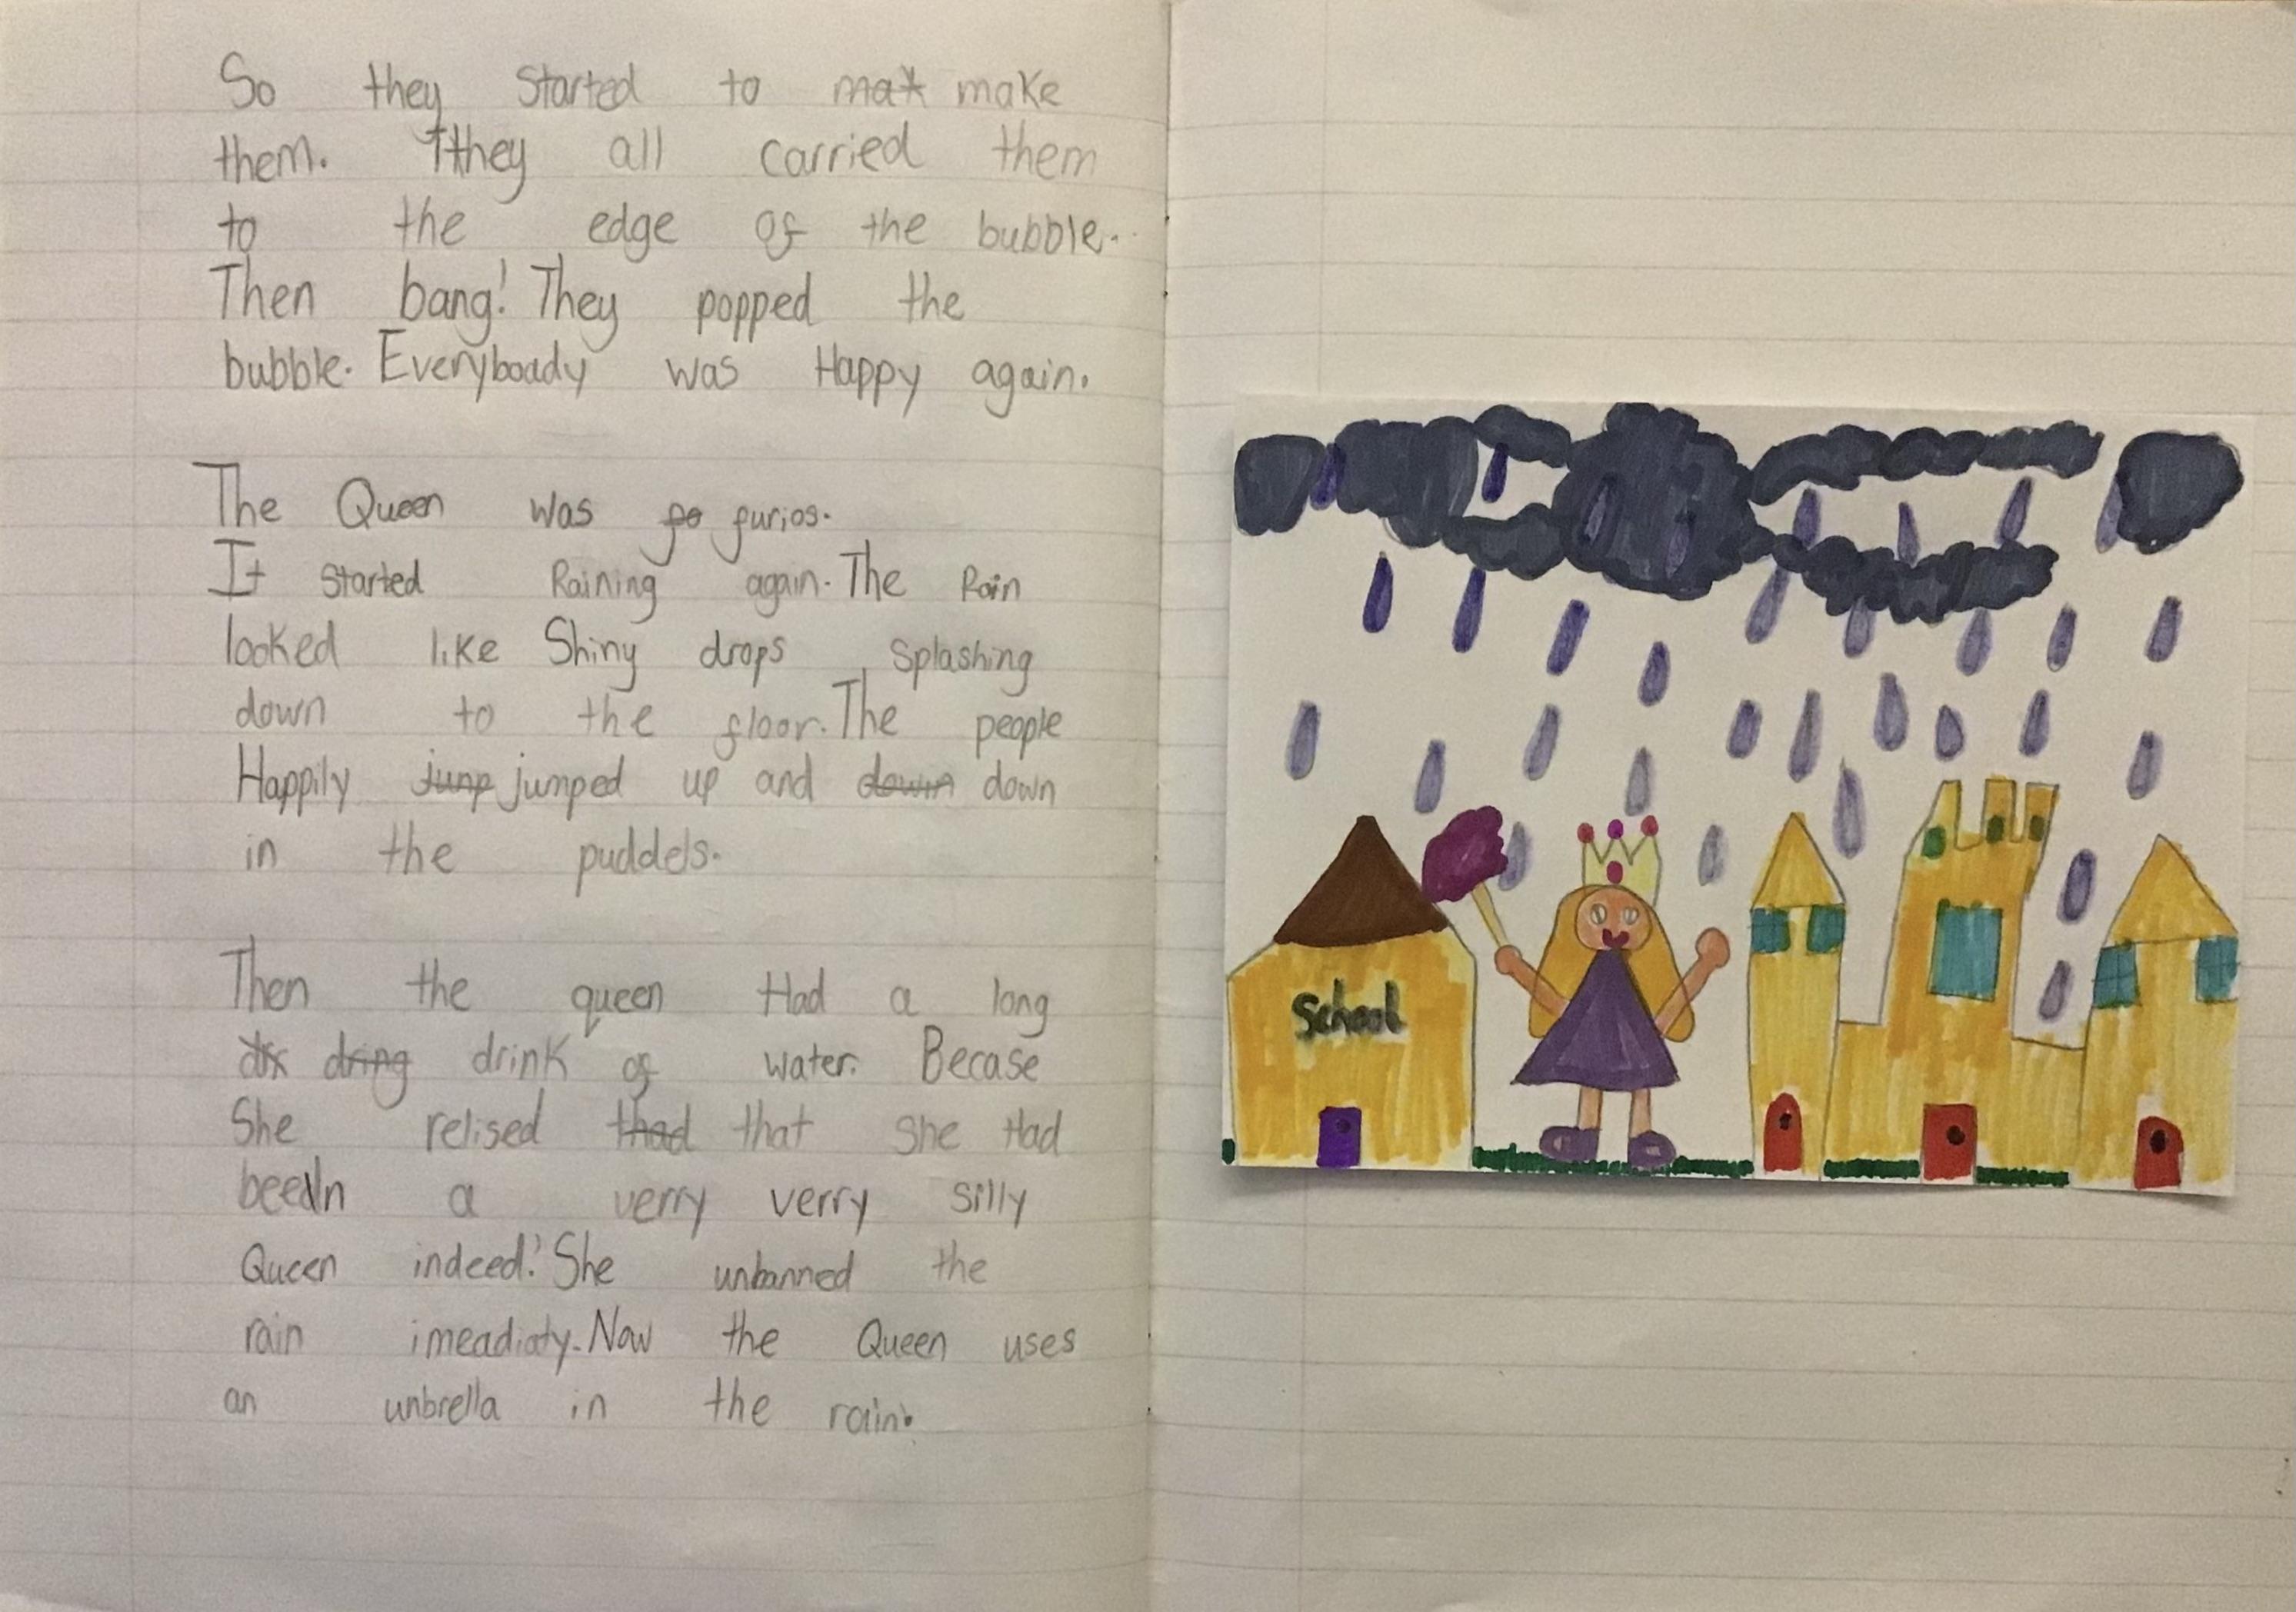 So they started to mak make
them. They all carried them
to the edge of the bubble.
Then bang! They popped the
bubble. Everyboady was Happy again.
The Queen was fo furios.
It started Raining again. The Rain
looked like Shiny drops splashing
down to the floor. The people
Happily jump jumped up and down down
in the puddels.
Then the queen Had a long
dring drink of water. Becase
She relised thad that she Had
been a verry verry silly
Queen indeed! She unbanned the
rain imeadiaty. Now the Queen uses
an unbrella in the rain.
School